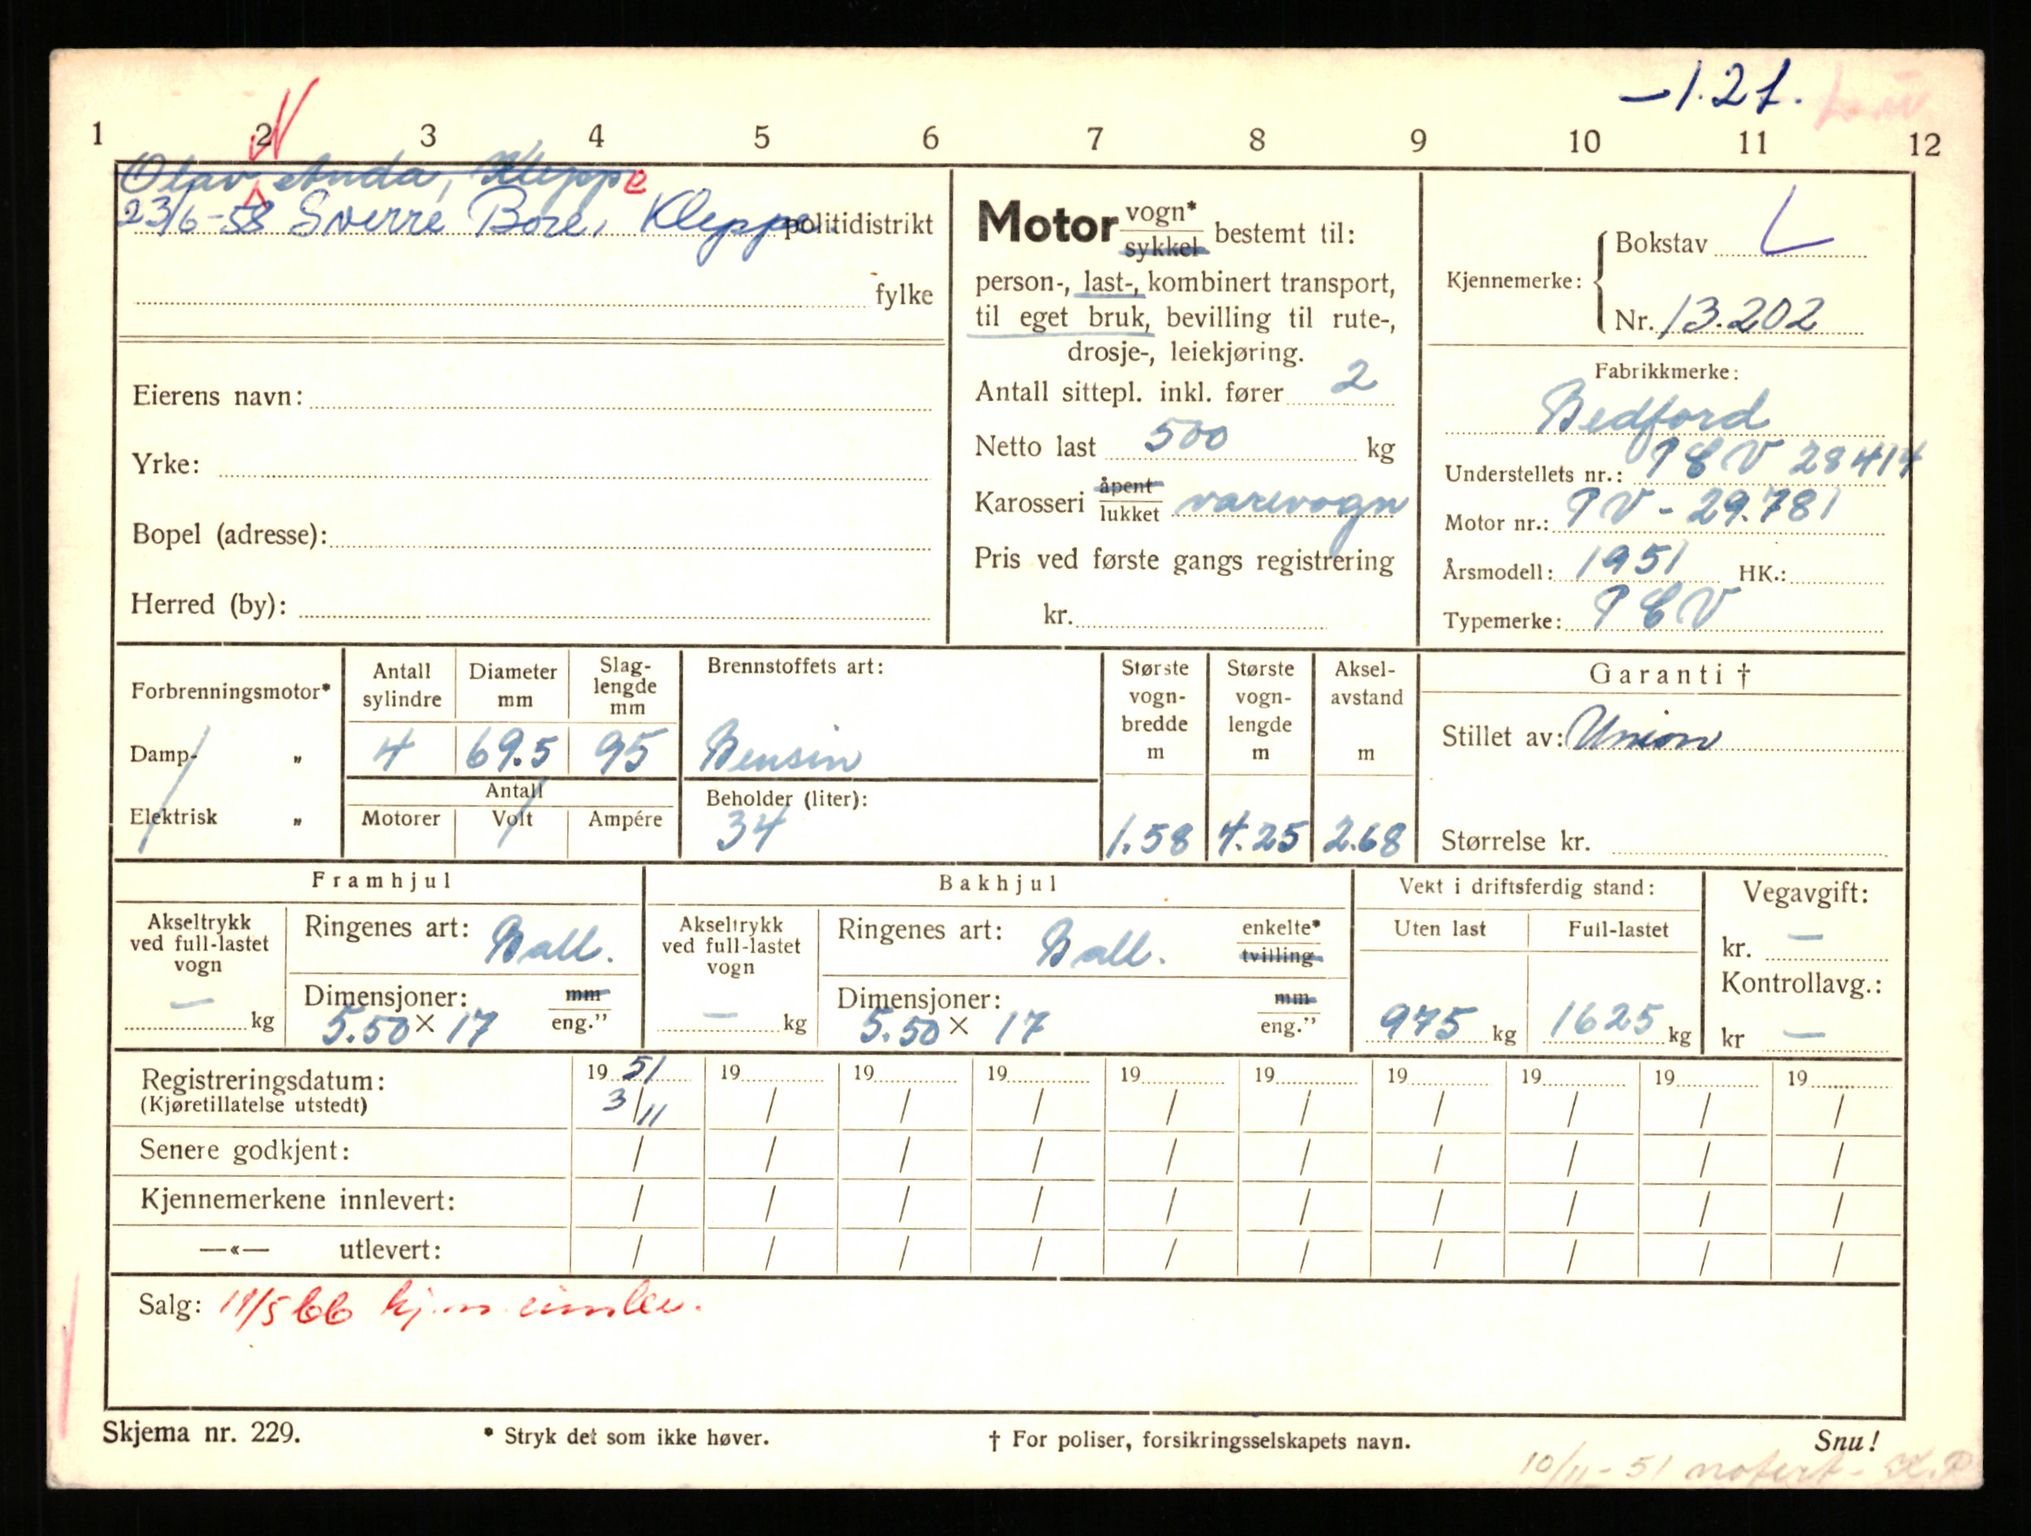 -1.21.
1 2 3 4 5 6 7 8 9 10 11 12
Olav Anda, Kleppe
23/6-58 Sverre Bore, Kleppe. politidistrikt
fylke
Eierens navn:
Yrke:
Bopel (adresse):
Herred (by):
Motor vogn* sykkel bestemt til:
person-, last-, kombinert transport,
til eget bruk, bevilling til rute-,
drosje-, leiekjøring.
Antall sittepl. inkl. fører 2
Netto last 500 kg
Karosseri åpent lukket varevogn
Pris ved første gangs registrering
kr.
Kjennemerke: Bokstav L
Nr. 13.202
Fabrikkmerke:
Bedford
Understellets nr.: PCV 28414
Motor nr.: PV - 29.781
Årsmodell: 1951 HK.:
Typemerke: PCV
Forbrenningsmotor*
Damp- "
Elektrisk "
Antall sylindre Diameter mm Slag-lengde mm
4 69.5 95
Antall
Motorer Volt Ampére
Brennstoffets art:
Bensin
Beholder (liter):
34
Største vogn-bredde m Største vogn-lengde m Aksel-avstand m
1.58 4.25 2.68
Garanti †
Stillet av: Union
Størrelse kr.
Framhjul
Akseltrykk ved full-lastet vogn
— kg
Ringenes art: Ball.
Dimensjoner: mm
5.50 × 17 eng."
Bakhjul
Akseltrykk ved full-lastet vogn
— kg
Ringenes art: Ball. enkelte* tvilling
Dimensjoner: mm
5.50 × 17 eng."
Vekt i driftsferdig stand:
Uten last Full-lastet
975 kg 1625 kg
Vegavgift:
kr. —
Kontrollavg.:
kr —
Registreringsdatum: 19 51 19 19 19 19 19 19 19 19 19
(Kjøretillatelse utstedt) 3/11 / / / / / / / / /
Senere godkjent: / / / / / / / / / /
Kjennemerkene innlevert: / / / / / / / / / /
—«— utlevert: / / / / / / / / / /
Salg: 11/5 66 kj.m. innlev.
Skjema nr. 229. * Stryk det som ikke høver. † For poliser, forsikringsselskapets navn. Snu!
10/11-51 notert - K.P